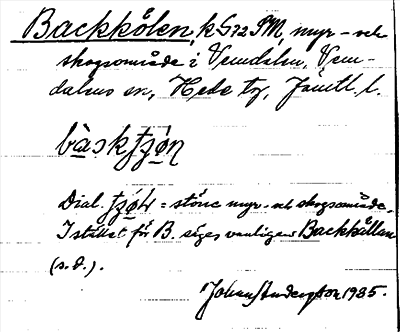 Backkölen, k G72 SM, myr- och
skogsområde i Vemdalen, Vem-
dalens sn, Hede tg, Jämtl. l.
bàskʃʒøn
Dial. = större myr- och skogsområde.
I stället för B. säges vanligen Backkällan
(s.d.).
Johan Anderzon 1935.